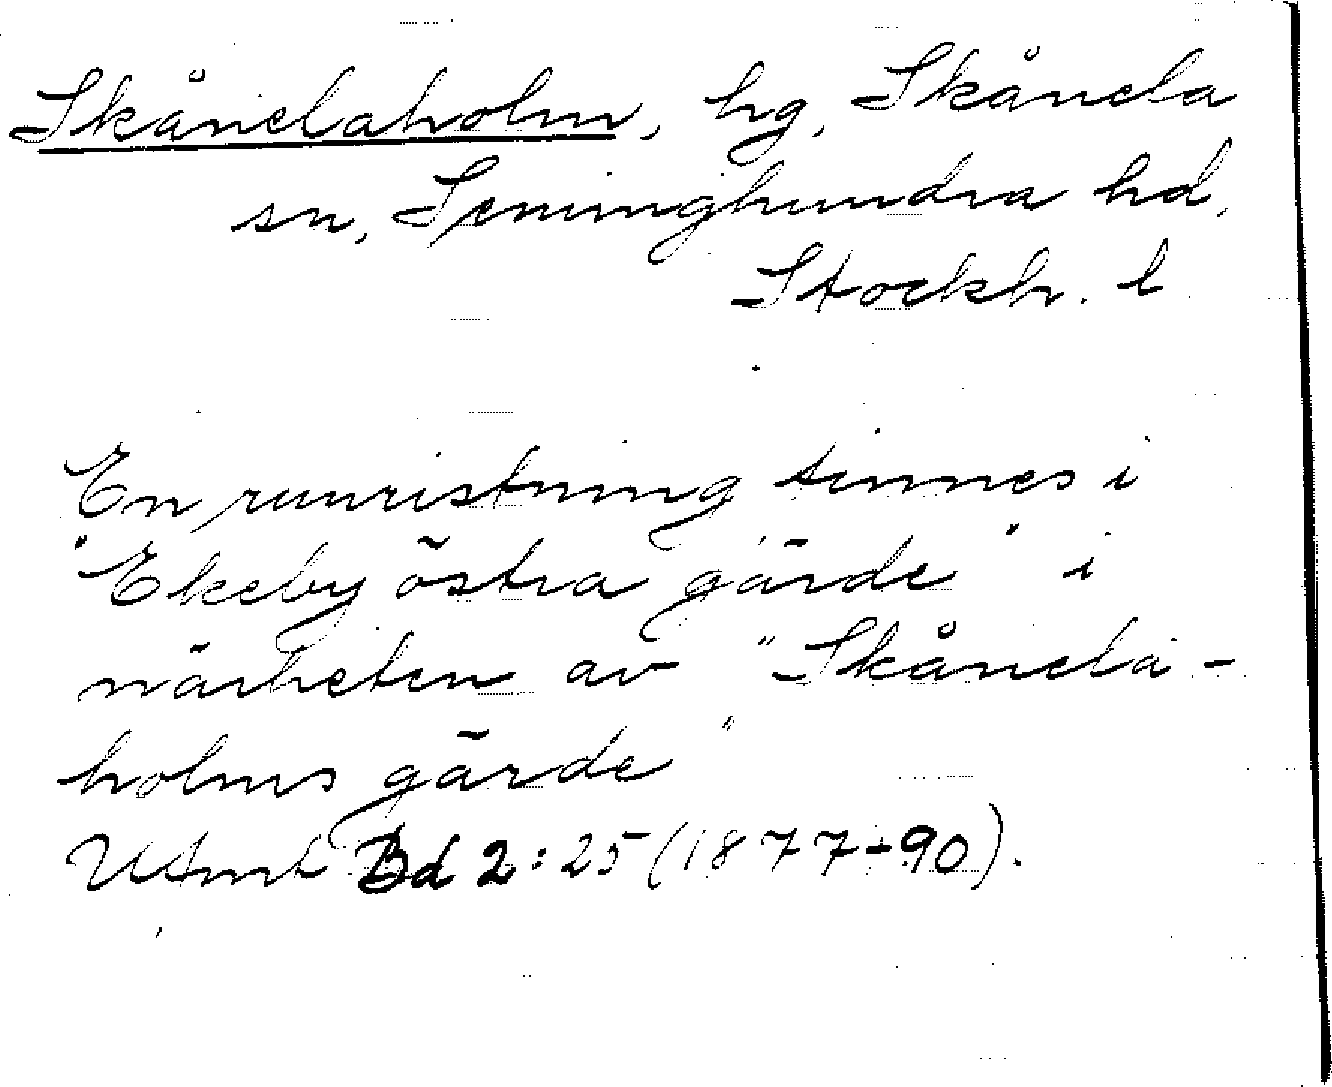 Skånelaholm, hg, Skånela
sn, Seminghundra hd,
Stockh. l
En runristning finnes i
"Ekeby östra gärde" i
närheten av "Skånela-
holms gärde"
UFmt Bd 2:25 (1877-90).